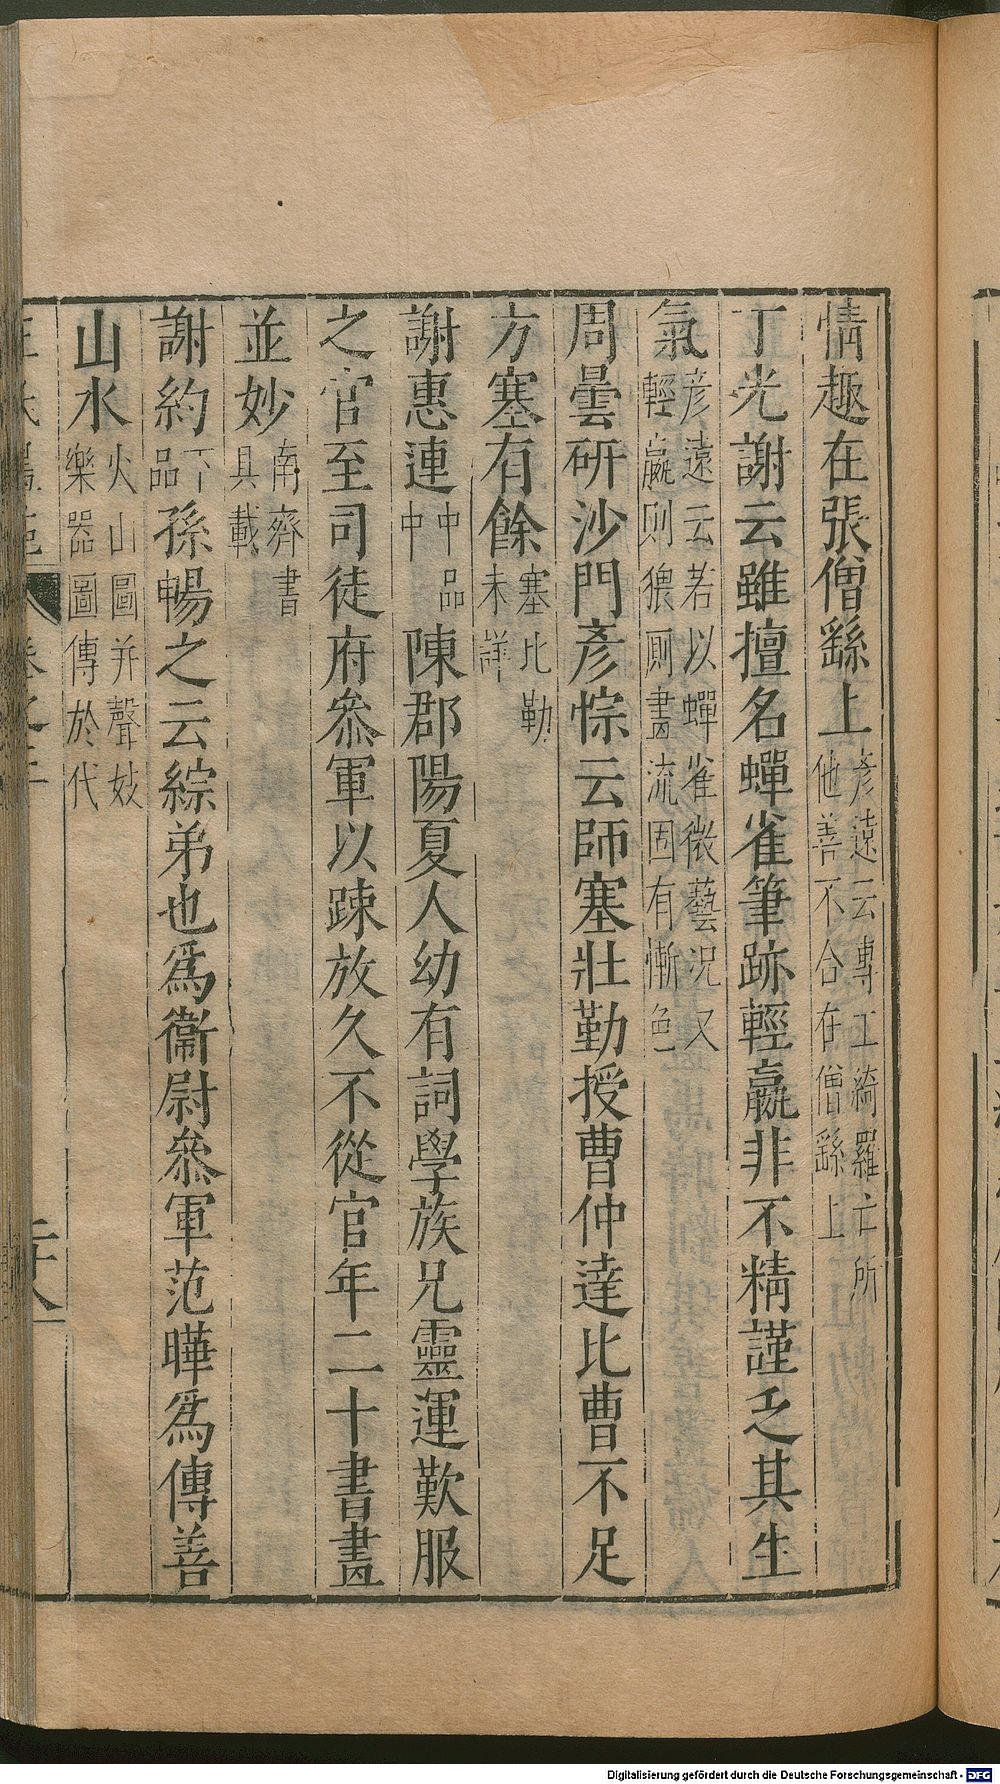 情趣在張僧繇上彦遠云專工綺羅亡所他善不合在僧繇上
丁光謝云雖擅名蟬雀筆跡輕羸非不精謹乏其生
氣彦遠云若以蟬雀微藝況又輕羸則猥厠畫流固有慚色
周曇研沙門彦悰云師塞壯勤授曹仲達比曹不足
方塞有餘塞比勒未詳
謝惠連中品中 陳郡陽夏人幼有詞學族兄靈運歎服
之官至司徒府叅軍以踈放久不從官年二十書畫
並妙南齊書具載
謝約下品孫暢之云綜弟也爲衞尉叅軍范曄爲傳善
山水火山圖并聲妓樂器圖傳於代
卷之三
Digitalisierung gefördert durch die Deutsche Forschungsgemeinschaft - DFG